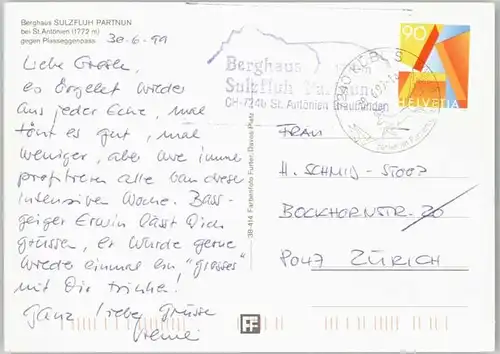 Berghaus SULZFLUH PARTNUN
bei St.Antönien (1772 m)
gegen Plasseggenpass
30-6-99
Liebe
es örgelet wieder
aus jeder Ecke, mal
tönt es gut, mal
weniger, aber wie immer
profitieren alle von dieser
intensiven Woche. Bass-
geiger Erwin lässt Dich
grüssen, er würde gerne
wieder einmal ein "grosses"
mit Dir trinke!
Ganz liebe Grüsse
38-414 Farbenfoto Furter, Davos Platz
Berghaus
Sulzfluh Partnun
CH-7246 St. Antönien Graubünden
90
HELVETIA
FRAU
H. SCHMID-STOOZ
BOCKHORNSTR. 20
8047 ZÜRICH